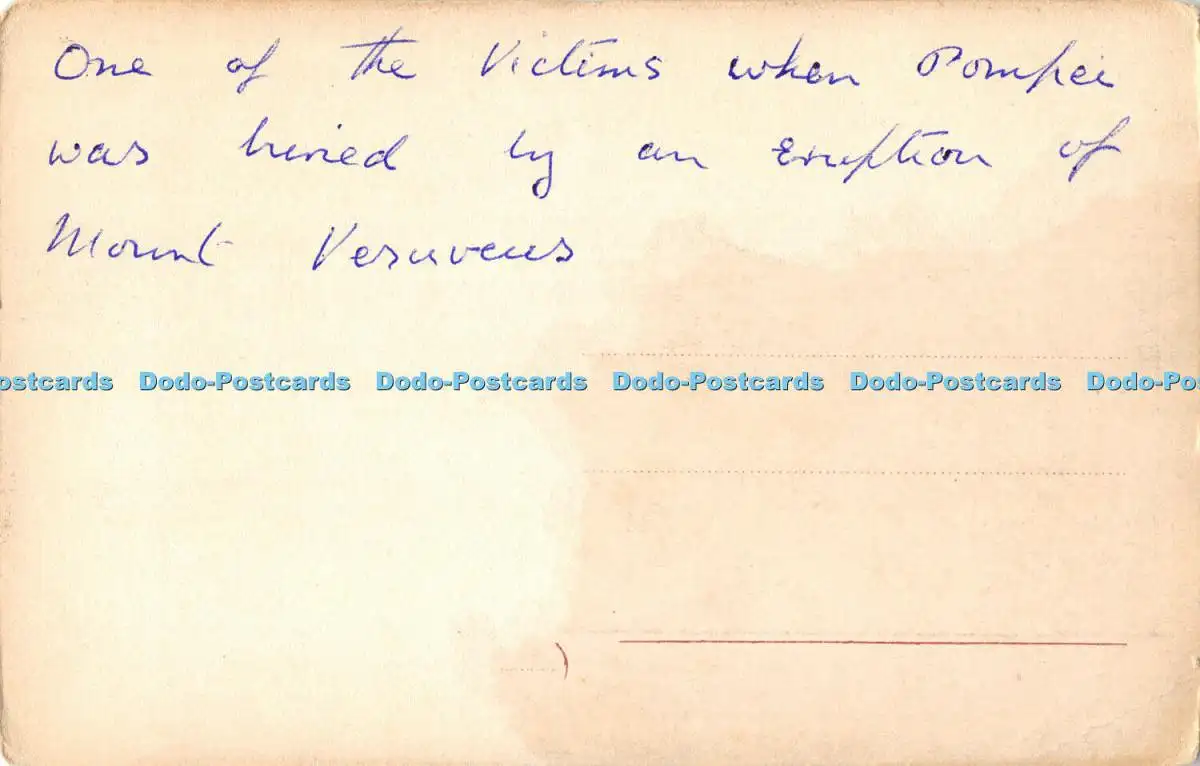 One of the Victims when Pompei
was buried by an Eruption of
Mount Vesuveus
ostcards Dodo-Postcards Dodo-Postcards Dodo-Postcards Dodo-Postcards Dodo-Po